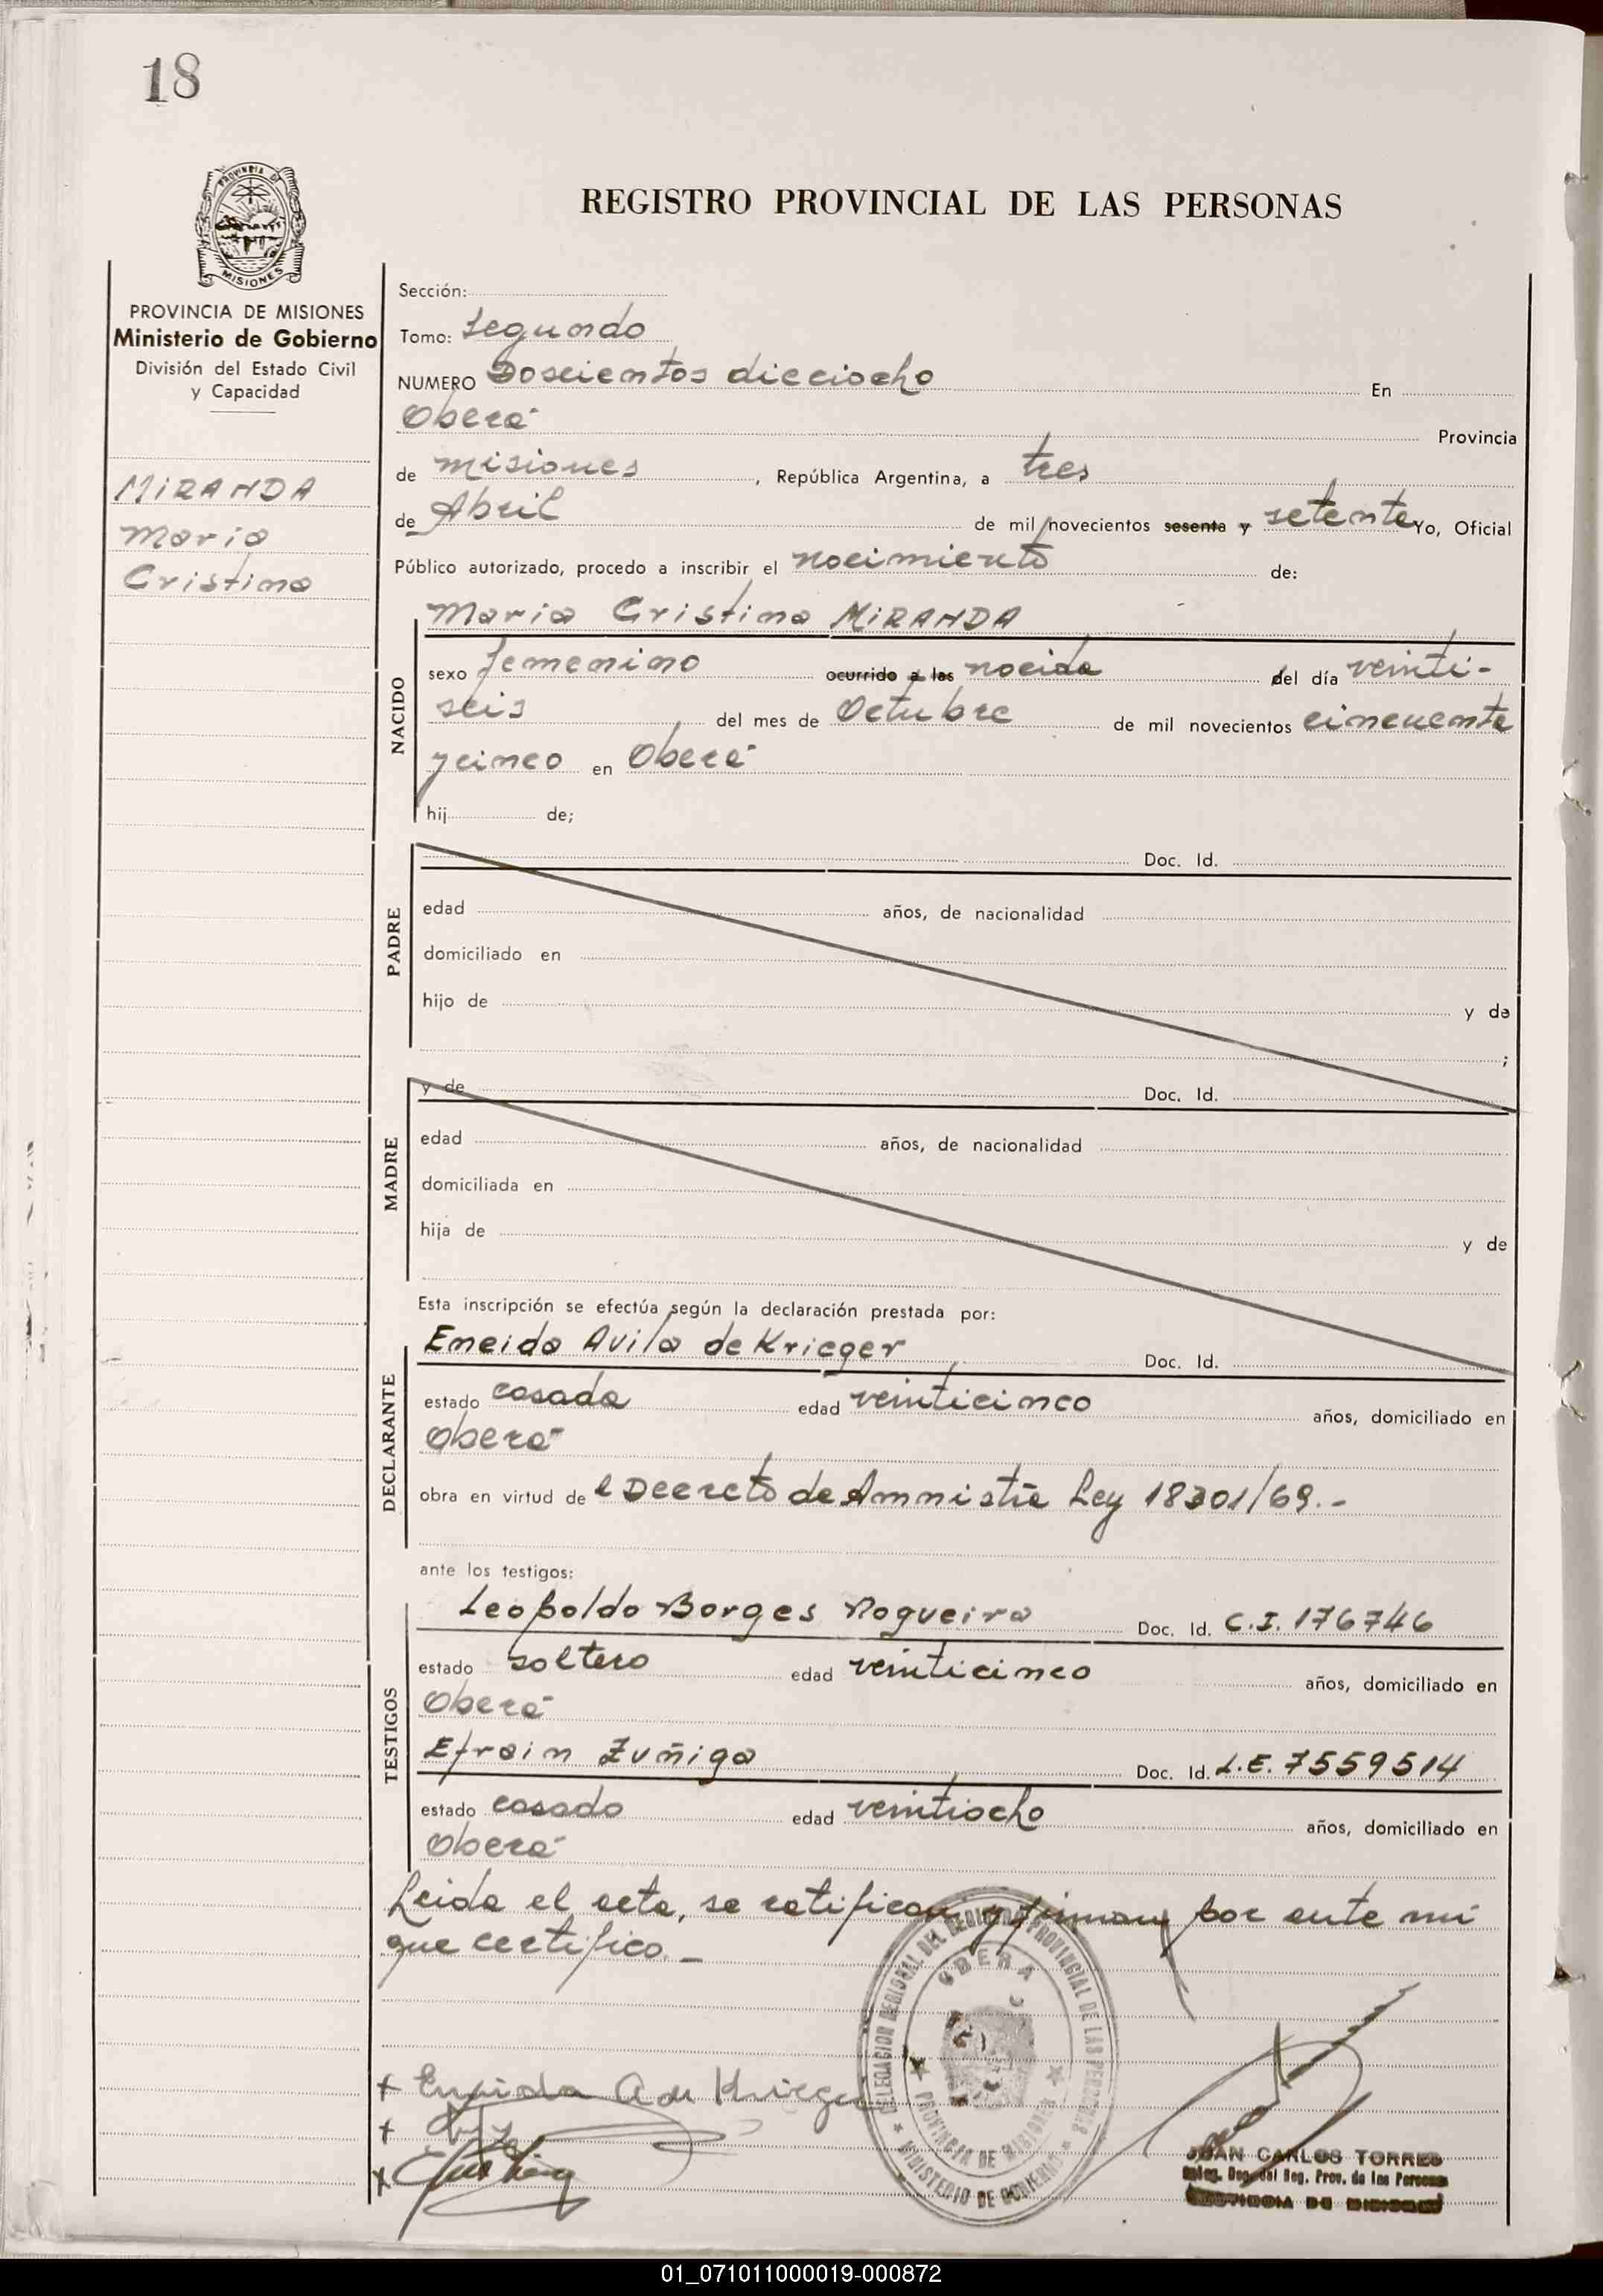 18
PROVINCIA DE
MISIONES
PROVINCIA DE MISIONES
Ministerio de Gobierno
División del Estado Civil
y Capacidad
MIRANDA
Maria
Cristina
REGISTRO PROVINCIAL DE LAS PERSONAS
Sección:
Tomo: Segundo
NUMERO Doscientos dieciocho En
Oberá Provincia
de Misiones, República Argentina, a tres
de Abril de mil novecientos sesenta y setenta Yo, Oficial
Público autorizado, procedo a inscribir el nacimiento de:
NACIDO
Maria Cristina MIRANDA
sexo femenino ocurrido a las nacida del día veinti-
seis del mes de Octubre de mil novecientos cincuenta
y cinco en Oberá
hij de;
PADRE
Doc. Id.
edad años, de nacionalidad
domiciliado en
hijo de y de
;
MADRE
y de Doc. Id.
edad años, de nacionalidad
domiciliada en
hija de y de
Esta inscripción se efectúa según la declaración prestada por:
DECLARANTE
Eneida Avila de Krieger Doc. Id.
estado casada edad veinticinco años, domiciliado en
Oberá
obra en virtud de l Decreto de Amnistía Ley 18301/69.-
ante los testigos:
TESTIGOS
Leopoldo Borges Nogueira Doc. Id. C.I. 176746
estado soltero edad veinticinco años, domiciliado en
Oberá
Efrain Zuñiga Doc. Id. L.E. 7559514
estado casado edad veintiocho años, domiciliado en
Oberá
Leida el acta, se ratifican y firman por ante mi
que certifico.-
DELEGACION REGIONAL DEL REGISTRO PROVINCIAL DE LAS PERSONAS
OBERA
PROVINCIA DE MISIONES
MINISTERIO DE GOBIERNO
Eneida A de Krieger
JUAN CARLOS TORRES
Deleg. Reg. del Reg. Prov. de las Personas
PROVINCIA DE MISIONES
01_071011000019-000872